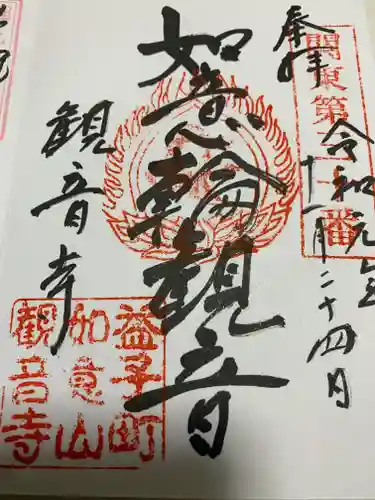 奉拝
關東第二十一番
令和元年
十一月二十四日
如意輪觀音
観音寺
益子町
如意山
観音寺